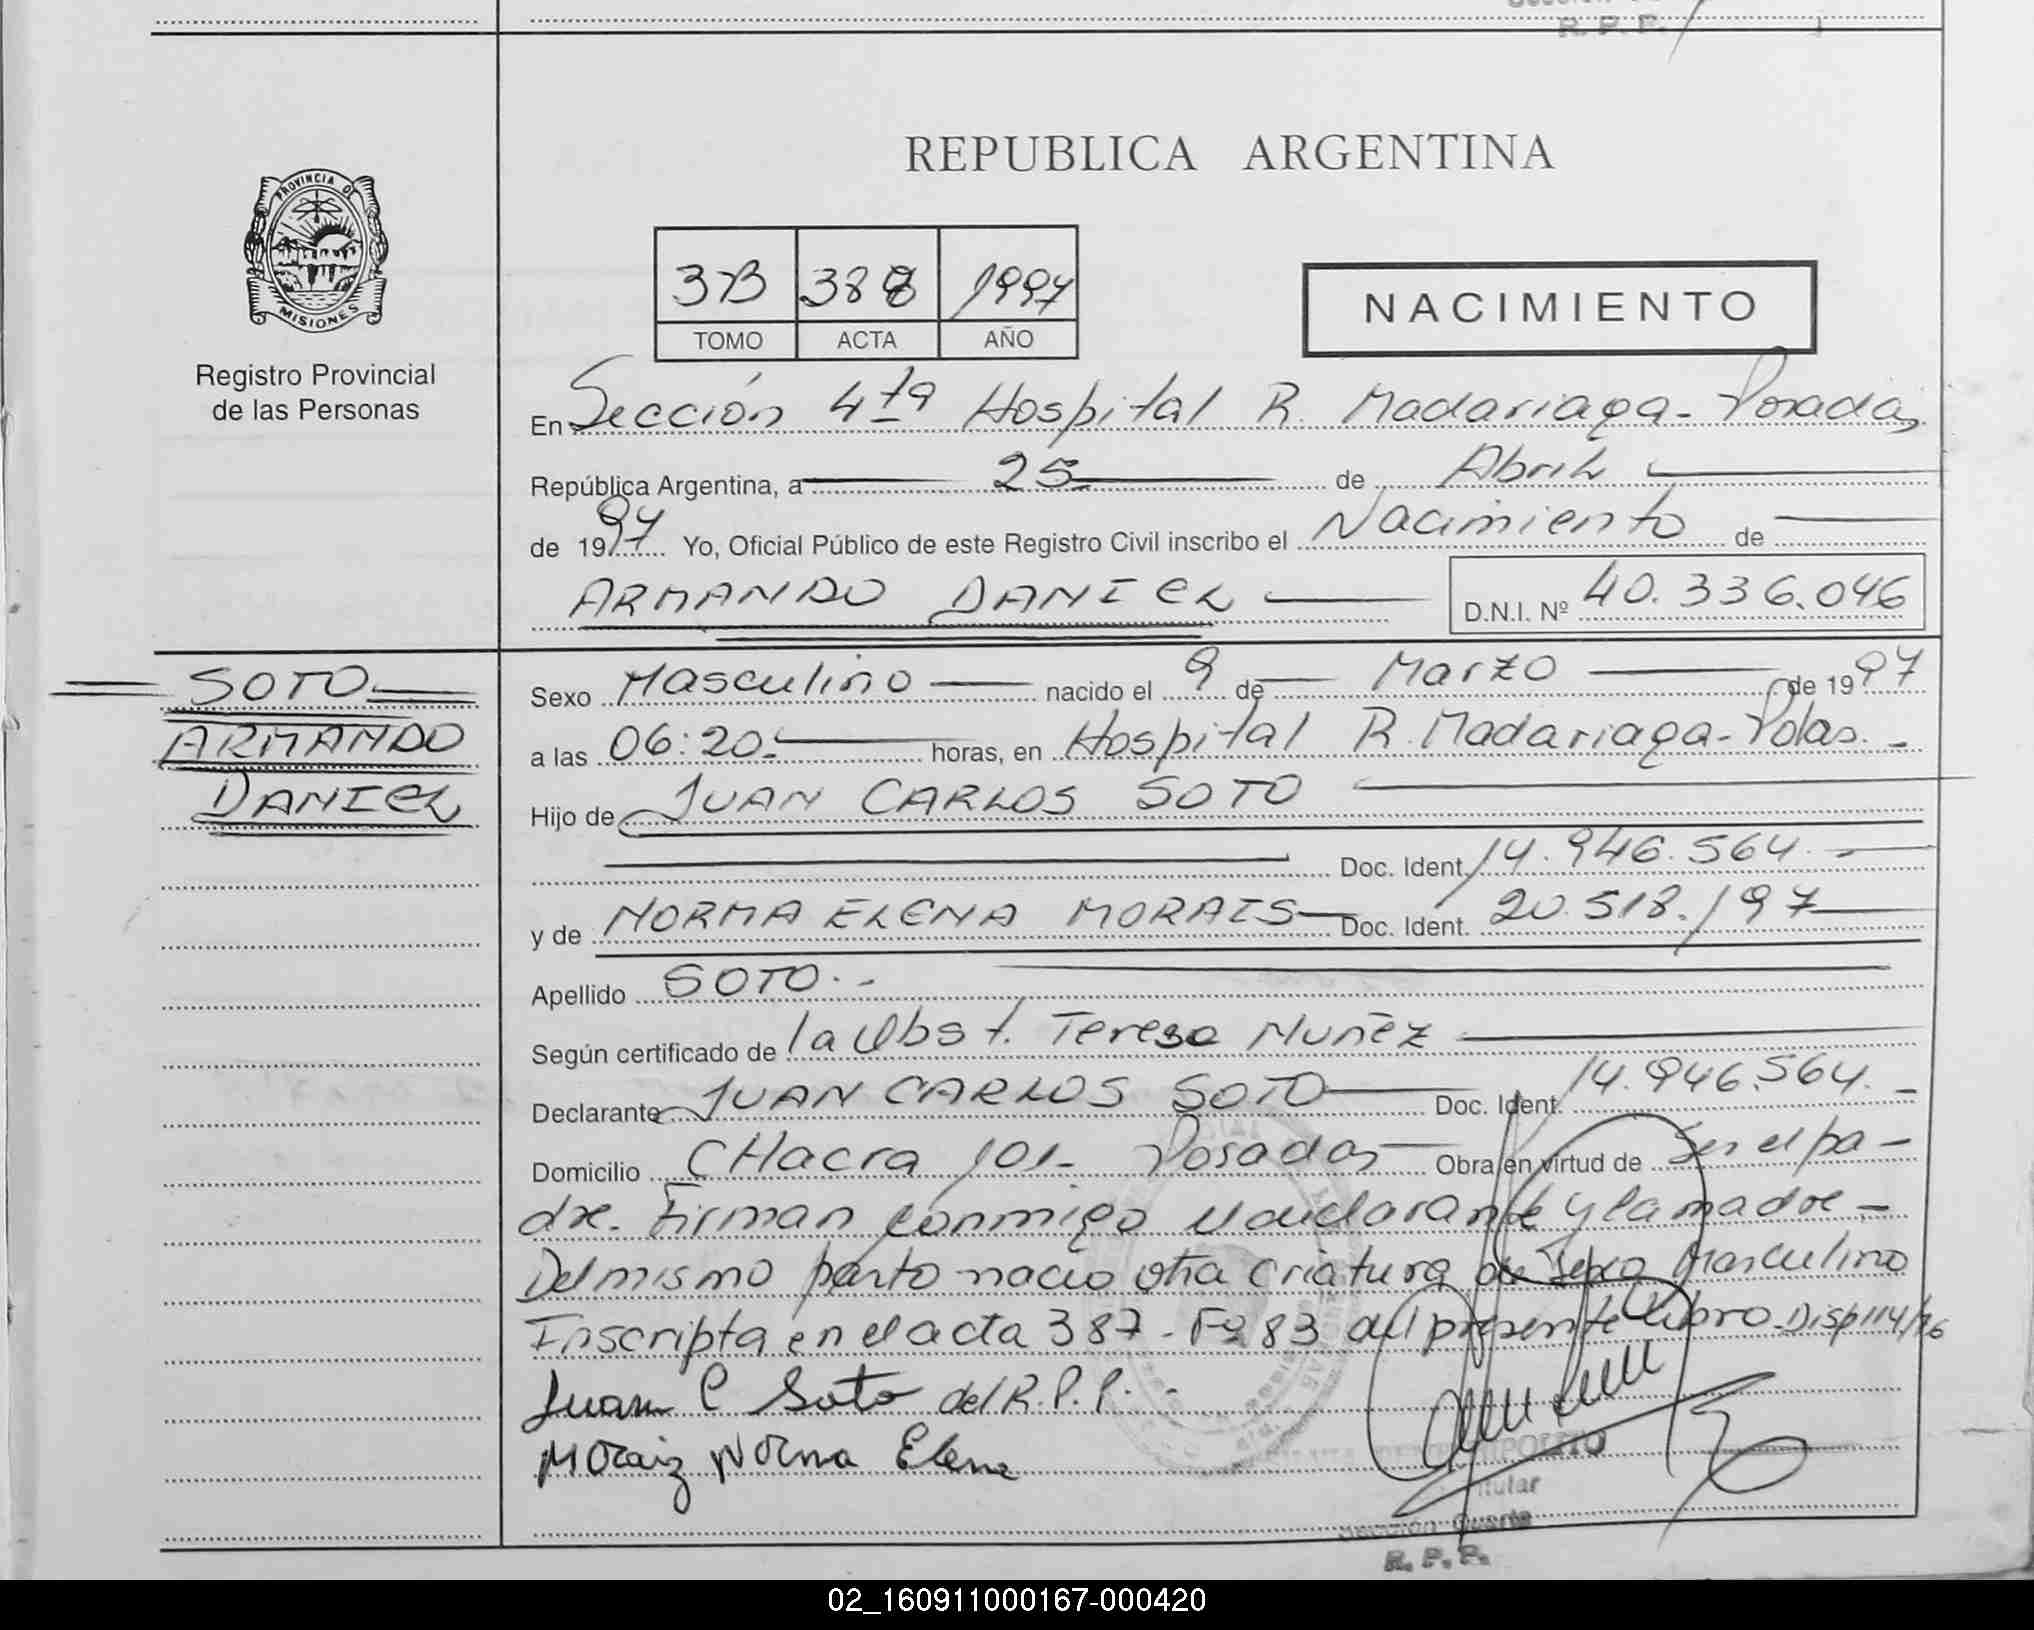 R. P. P.
REPUBLICA ARGENTINA
PROVINCIA DE
MISIONES
Registro Provincial
de las Personas
3B 388 1997
TOMO ACTA AÑO
NACIMIENTO
En Sección 4ta Hospital R. Madariaga - Posadas
República Argentina, a 25 de Abril
de 1997 Yo, Oficial Público de este Registro Civil inscribo el Nacimiento de
ARMANDO DANIEL D.N.I. Nº 40.336.046
SOTO
ARMANDO
DANIEL
Sexo Masculino nacido el 9 de Marzo de 1997
a las 06:20.- horas, en Hospital R. Madariaga - Pdas.-
Hijo de JUAN CARLOS SOTO
Doc. Ident. 14.946.564.-
y de NORMA ELENA MORAIS Doc. Ident. 20.518.197
Apellido SOTO.-
Según certificado de la Obst. Teresa Nuñez
Declarante JUAN CARLOS SOTO Doc. Ident. 14.946.564.-
Domicilio CHacra 101- Posadas Obra en virtud de Ser el pa-
dre. Firman conmigo el declarante y la madre-
Del mismo parto nacio otra criatura de Sexo Masculino
Inscripta en el acta 387 - Fº 83 del presente Libro - Disp 114/96
Juan C Soto del R.P.P.-
Moraiz Norma Elena
HIPOLITO
Titular
Sección Cuarta
R. P. P.
02_160911000167-000420